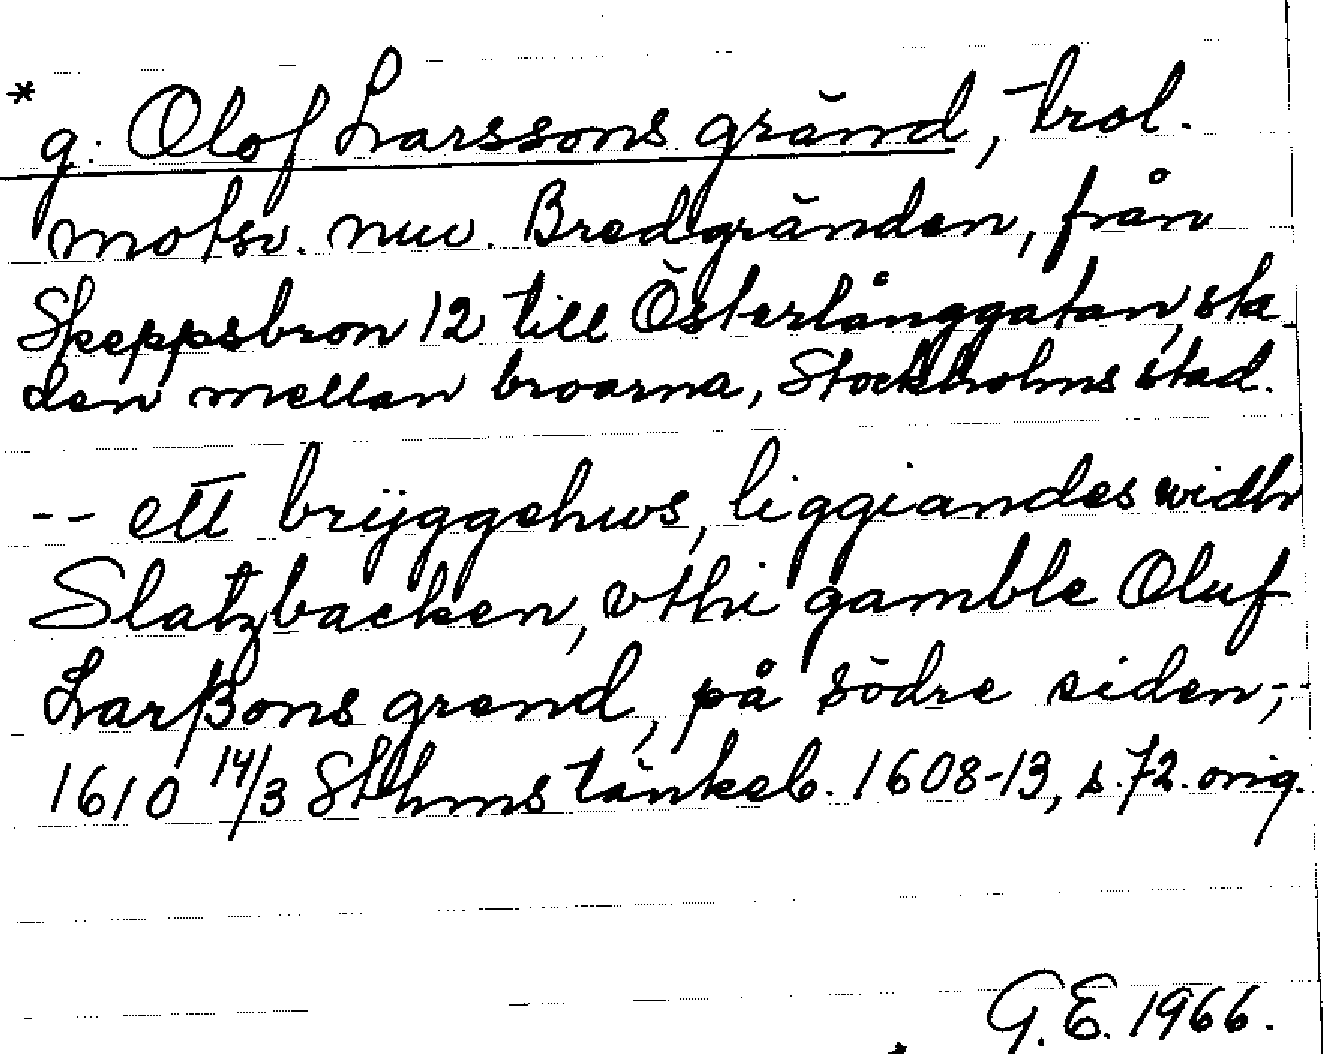 * g. Olof Larssons gränd, trol.
motsv. nuv. Bredgränden, från
Skeppsbron 12 till Österlånggatan, sta-
den mellan broarna, Stockholms stad.
-- ett brÿggehws, liggiandes widh
Slatzbacken, vthi gamble Oluf
Larßons grend, på södre siden,--
1610 14/3 Sthms tänkeb. 1608-13, s. 72. orig.
G.E. 1966.